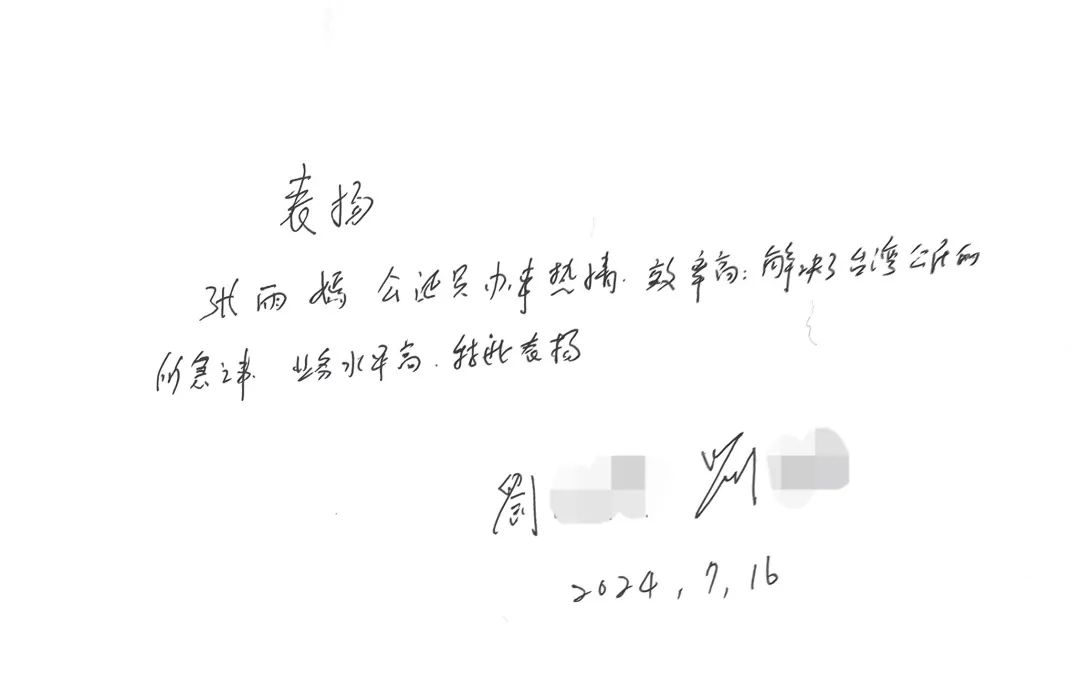 表扬
张雨嫣 公证员办事热情. 效率高; 解决了台湾公民的
所急之事. 业务水平高. 特此表扬
劉 刘
2024,7,16